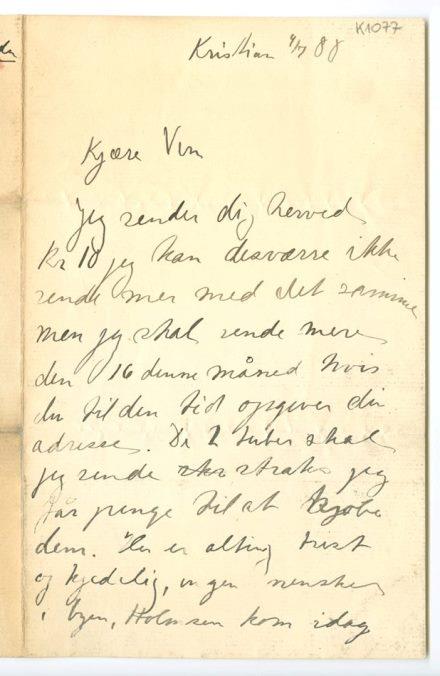 K1077
Kristian 4/7 88
Kjære Ven
Jeg sender dig herved
Kr 10 jeg kan desværre ikke
sende mer med det samme
men jeg skal sende mere
den 16 denne måned hvis
du til den tid opgiver din
adresse. De 2 tuber skal
jeg sende straks jeg
får penge til at kjøbe
dem. Her er alting trist
og kjedelig, ingen mennesker
i byen, Holmsen kom idag